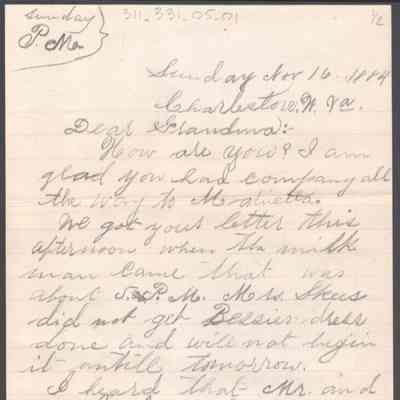 Sunday
P.M.
311-331-05-01
1/2
Sunday Nov 16. 1884
Charleston, W. Va.
Dear Grandma:-
How are you? I am
glad you had company all
the way to Marietta.
We got your letter this
afternoon when the milk
man came that was
about P.M. Mrs. Skees
did not get Bessies dress
done and will not begin
it untill tomorrow.
I heard that Mr. and